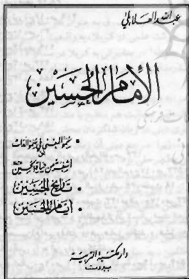 عبد الله العلايلي
الإمام الحسين
سمو المعنى في سمو الذات
أشعة من حياة الحسين
تاريخ الحسين
أيام الحسين
دار مكتبة التربية
بيروت